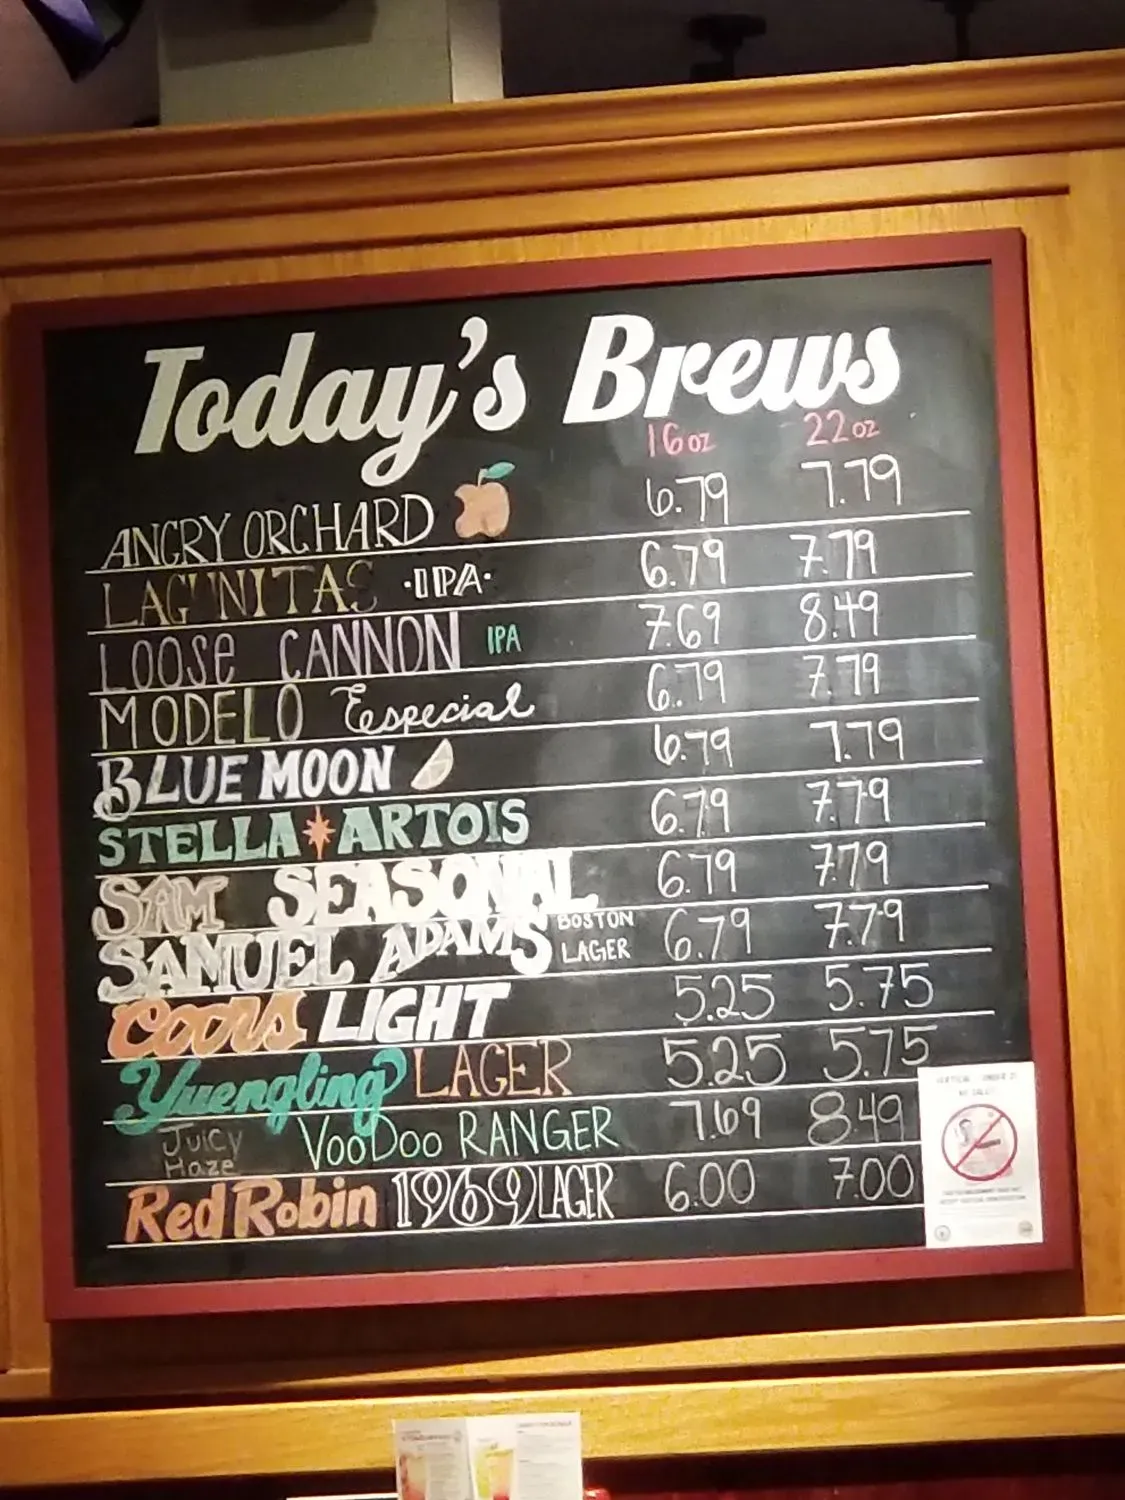 Today's Brews
16oz 22oz
ANGRY ORCHARD 6.79 7.79
LAGUNITAS ·IPA· 6.79 7.79
LOOSE CANNON IPA 7.69 8.49
MODELO Especial 6.79 7.79
BLUE MOON 6.79 7.79
STELLA ARTOIS 6.79 7.79
SAM SEASONAL 6.79 7.79
SAMUEL ADAMS BOSTON LAGER 6.79 7.79
Coors LIGHT 5.25 5.75
Yuengling LAGER 5.25 5.75
Juicy Haze VooDoo RANGER 7.69 8.49
Red Robin 1969 LAGER 6.00 7.00